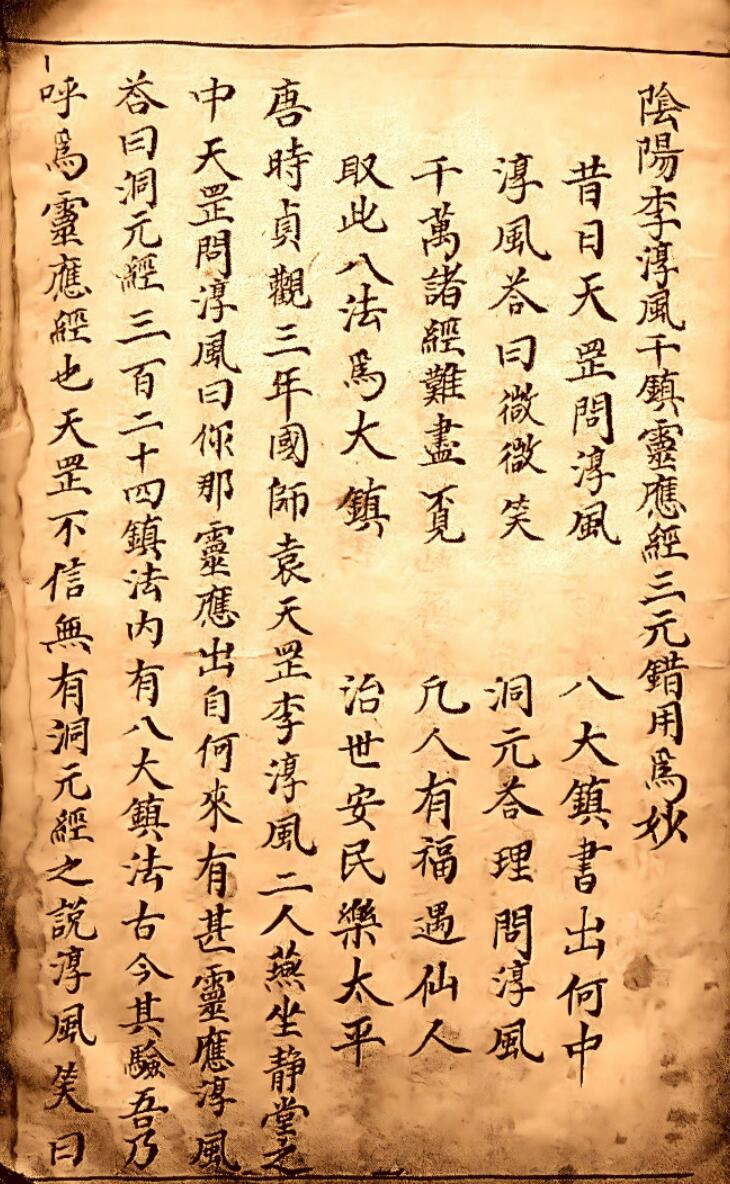 陰陽李淳風千鎮靈應經三元錯用為妙
昔日天罡問淳風 八大鎮書出何中
淳風荅曰微微笑 洞元荅理問淳風
千萬諸經難盡覔 凢人有福遇仙人
取此八法為大鎮 治世安民樂太平
唐時貞觀三年國師袁天罡李淳風二人燕坐静堂之
中天罡問淳風曰你那靈應出自何來有甚靈應淳風
荅曰洞元經三百二十四鎮法内有八大鎮法古今其驗吾乃
呼為靈應經也天罡不信無有洞元經之說淳風笑曰